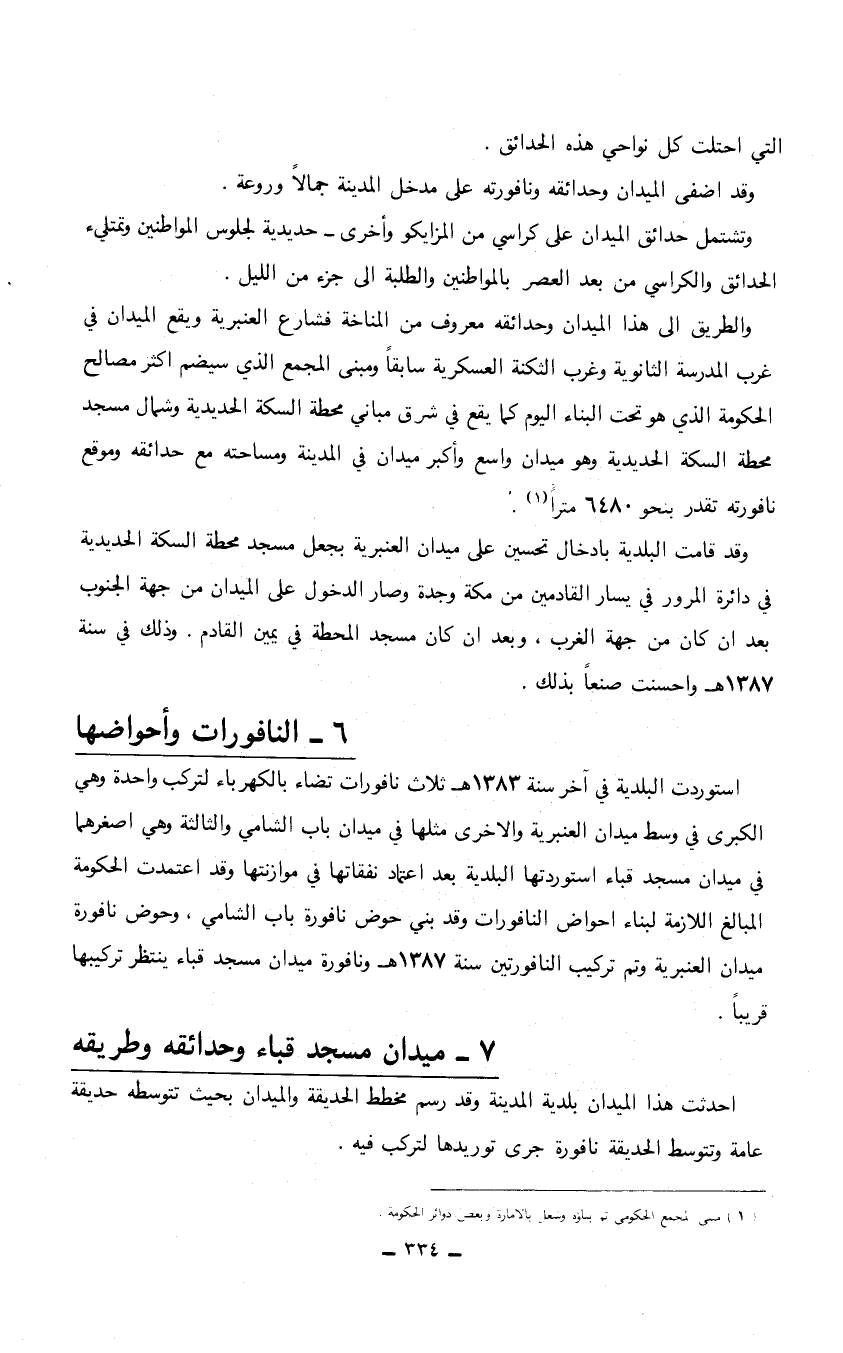 التي احتلت كل نواحي هذه الحدائق .
وقد اضفى الميدان وحدائقه ونافورته على مدخل المدينة جمالاً وروعة .
وتشتمل حدائق الميدان على كراسي من المزايكو وأخرى ـ حديدية لجلوس المواطنين وتمتليء
الحدائق والكراسي من بعد العصر بالمواطنين والطلبة الى جزء من الليل .
والطريق الى هذا الميدان وحدائقه معروف من المناخة فشارع العنبرية ويقع الميدان في
غرب المدرسة الثانوية وغرب الثكنة العسكرية سابقاً ومبنى المجمع الذي سيضم اكثر مصالح
الحكومة الذي هو تحت البناء اليوم كما يقع في شرق مباني محطة السكة الحديدية وشمال مسجد
محطة السكة الحديدية وهو ميدان واسع وأكبر ميدان في المدينة ومساحته مع حدائقه وموقع
نافورته تقدر بنحو ٦٤٨٠ متراً (١) .
وقد قامت البلدية بادخال تحسين على ميدان العنبرية بجعل مسجد محطة السكة الحديدية
في دائرة المرور في يسار القادمين من مكة وجدة وصار الدخول على الميدان من جهة الجنوب
بعد ان كان من جهة الغرب ، وبعد ان كان مسجد المحطة في يمين القادم . وذلك في سنة
١٣٨٧هـ واحسنت صنعاً بذلك .
٦ ـ النافورات وأحواضها
استوردت البلدية في آخر سنة ١٣٨٣هـ ثلاث نافورات تضاء بالكهرباء لتركب واحدة وهي
الكبرى في وسط ميدان العنبرية والاخرى مثلها في ميدان باب الشامي والثالثة وهي اصغرهما
في ميدان مسجد قباء استوردتها البلدية بعد اعتماد نفقاتها في موازنتها وقد اعتمدت الحكومة
المبالغ اللازمة لبناء احواض النافورات وقد بني حوض نافورة باب الشامي ، وحوض نافورة
ميدان العنبرية وتم تركيب النافورتين سنة ١٣٨٧هـ ونافورة ميدان مسجد قباء ينتظر تركيبها
قريباً .
٧ ـ ميدان مسجد قباء وحدائقه وطريقه
احدثت هذا الميدان بلدية المدينة وقد رسم مخطط الحديقة والميدان بحيث تتوسطه حديقة
عامة وتتوسط الحديقة نافورة جرى توريدها لتركب فيه .
( ١ ) مبنى المجمع الحكومي تم بناؤه وشغل بالامارة وبعض دوائر الحكومة .
ـ ٣٣٤ ـ